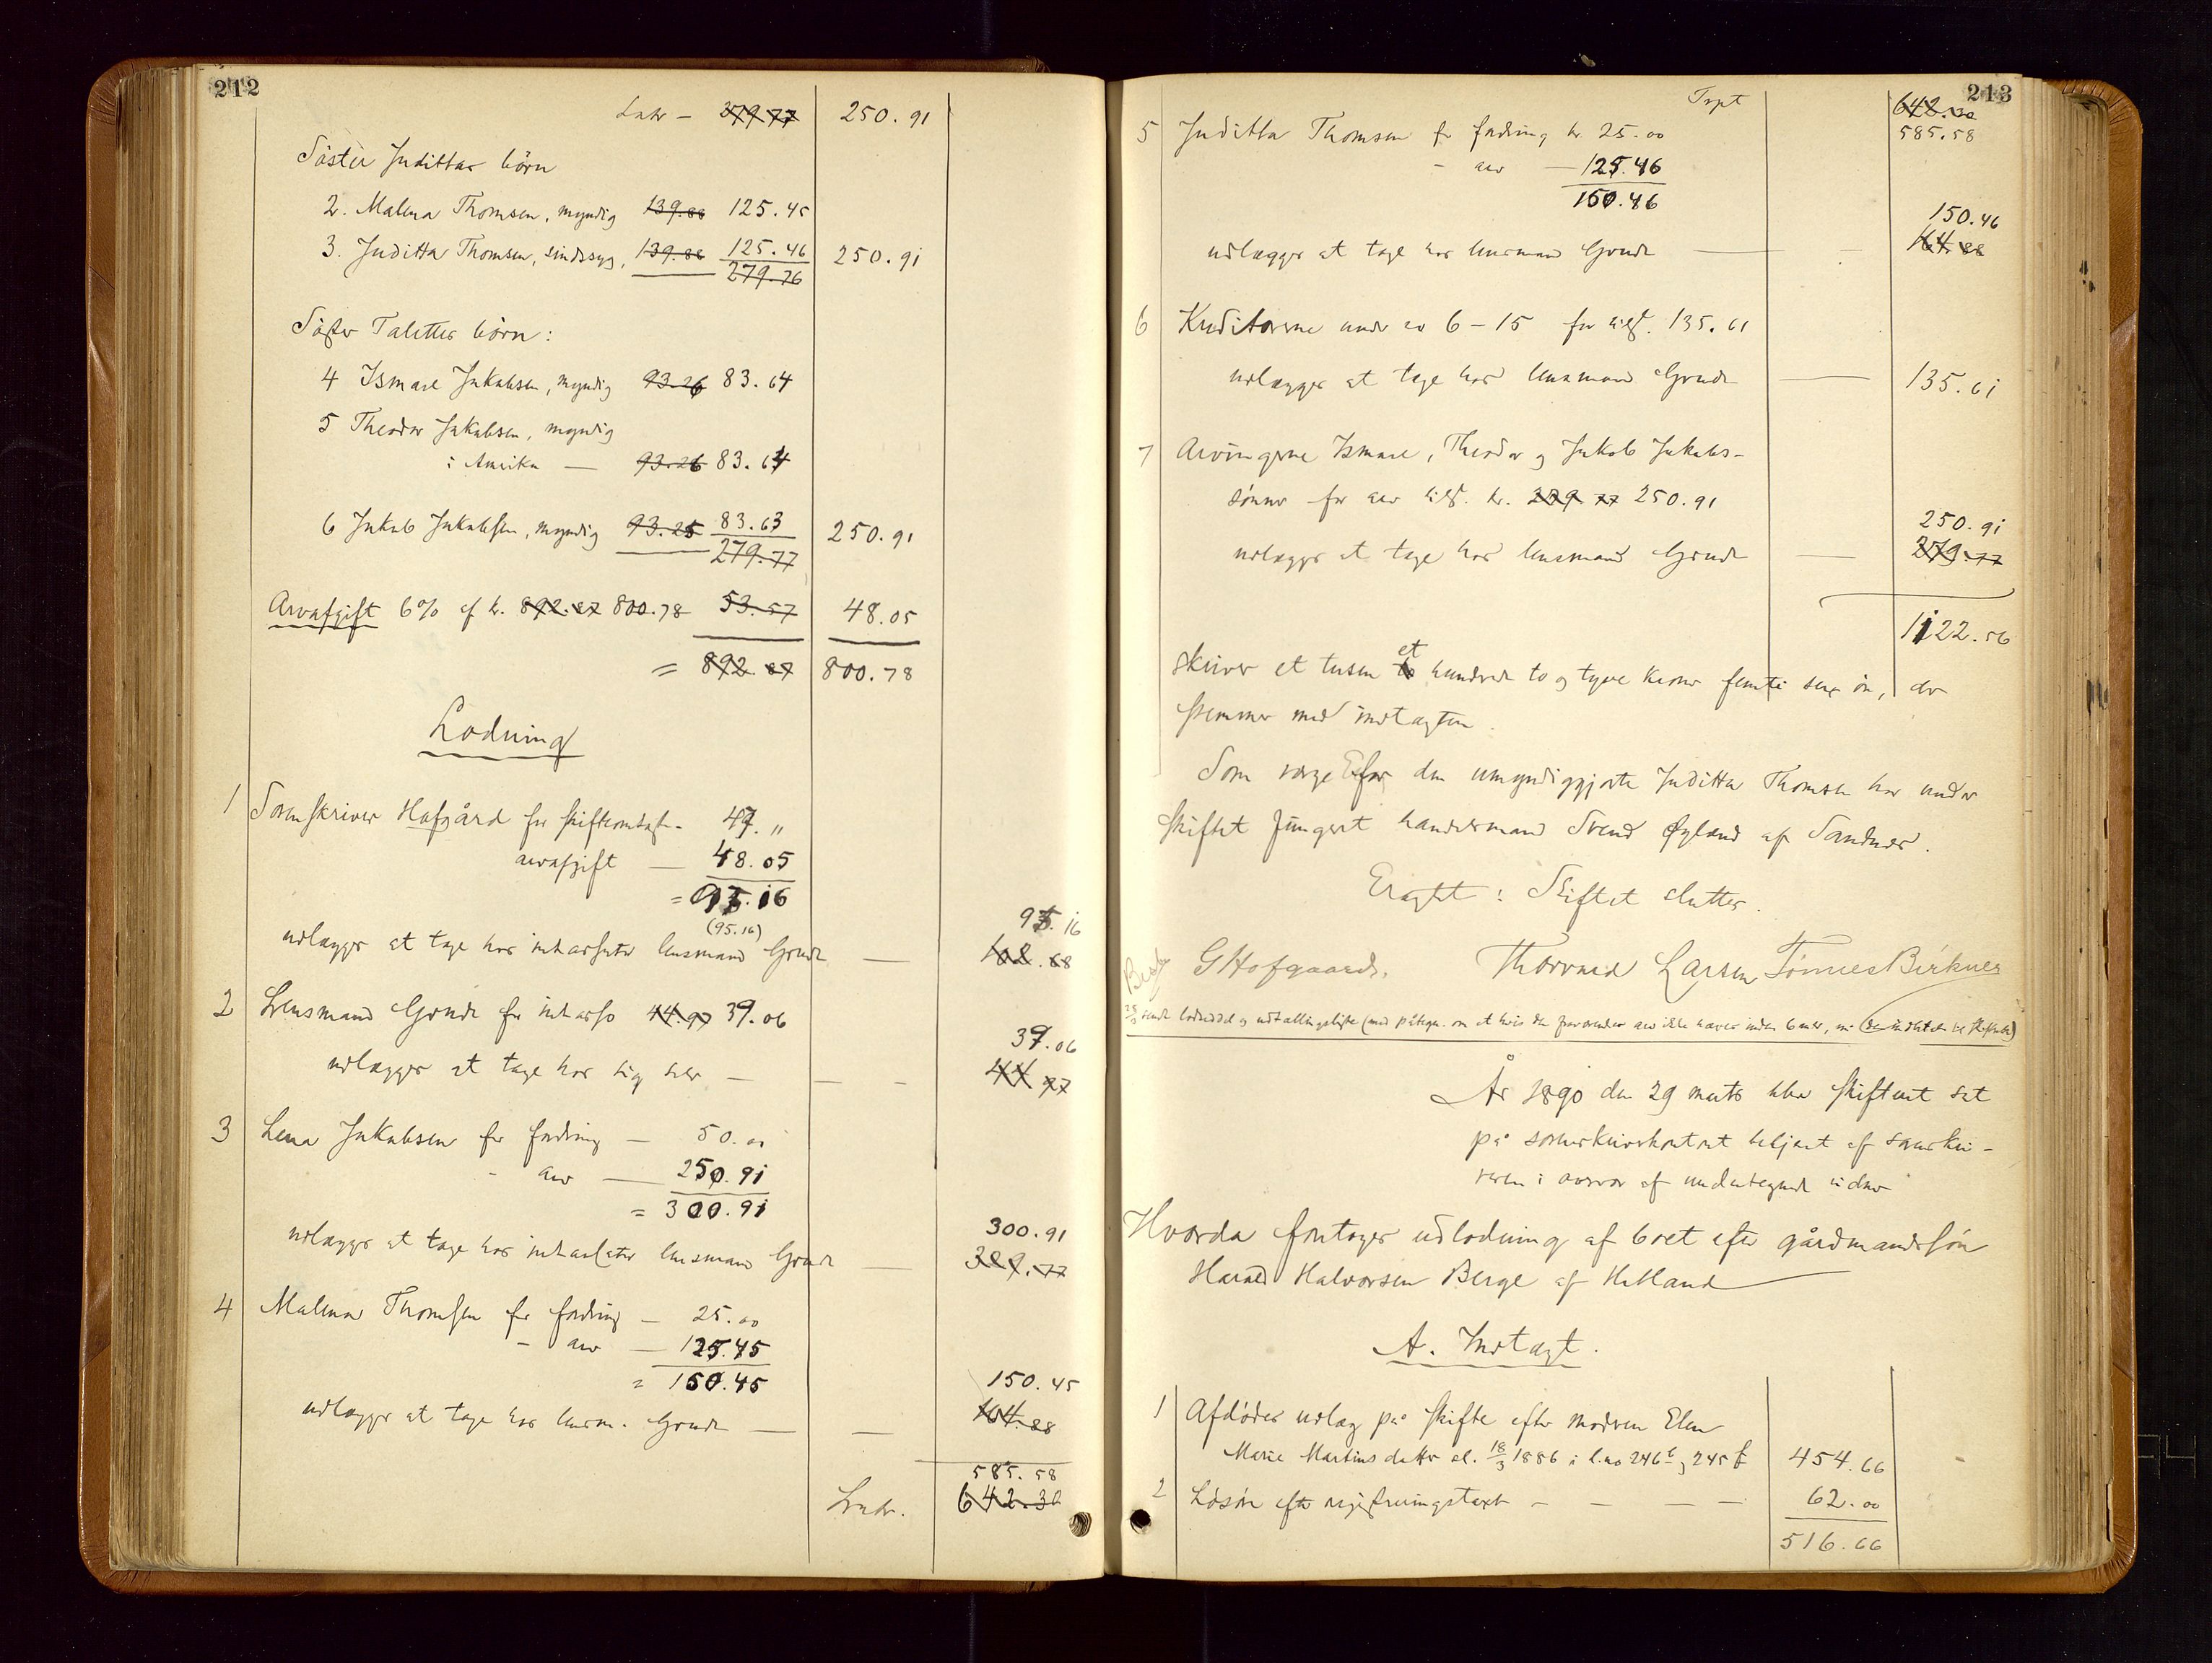 212
Latr – 279.77 250.91
Søster Judittas börn
2. Malena Thomsen, myndig 139.88 125.45
3. Juditta Thomsen, sindssyg, 139.88 125.46 250.91
279.76
Søster Talettes börn:
4 Ismael Jakobsen, myndig 93.26 83.64
5 Theodor Jakobsen, myndig
i Amrika — 93.26 83.64
6 Jakob Jakobsen, myndig 93.25 83.63 250.91
279.77
Arvafgift 6% af kr. 892.87 800.78 53.57 48.05
= 892.87 800.78
Lodning
1 Sorenskriver Hofgård for skifteomkostn. 47."
arvafgift — 48.05
= 95.16
(95.16)
udlægges at tage hos inkassator lensmand Grude — 95.16
102.68
2 Lensmand Grude for inkasso 44.97 39.06
39.06
udlægges at tage hos sig selv — — - 44.97
3 Lena Jakobsen for fordring — 50.00
- arv — 250.91
= 300.91
300.91
udlægges at tage hos inkassator lensmand Grude — 329.77
4 Malena Thomsen for fordring — 25.00
- arv — 125.45
= 150.45
150.45
udlægges at tage hos lensm. Grude — — 164.88
585.58
Latr. 642.30
213
Trpt 642.30
585.58
5 Juditta Thomsen for fordring kr. 25.00
- arv — 125.46
150.46
150.46
udlægges at tage hos lensmand Grude — - 164.88
6 Kreditorerne under no 6 – 15 for tils. 135.61
udlægges at tage hos lensmand Grude — 135.61
7 Arvingerne Ismael, Theodor og Jakob Jakobs-
sønner for arv tils. kr. 279.77 250.91
250.91
udlægges at tage hos lensmand Grude — 279.77
1122.56
skriver et tusen to et hundrede to og tyve kroner femti sex øre, der
stemmer med indtægten.
Som verge for den umyndiggjorte Juditta Thomsen har under
skiftet fungert handelsmand Svend Øgland af Sandnes.
Eragtet: Skiftet slutter.
G Hofgaard. Thorvald Larsen Tønnes Birknes
År 1890 den 29 marts blev skifteret sat
på sorenskriverkontoret betjent af sorenskri-
veren i overvær af undertegnede vidner
Hvorda foretoges udlodning af boet efter gårdmandssøn
Harald Halvorsen Berge af Hetland
A. Indtægt.
1 Afdødes udlæg på skifte efter modren Elen
Marie Martinsdatter sl. 18/3 1886 i l.no 246 b og 245 f 454.66
2 Løsøre efter registreringstaxt — — — — 62.00
516.66